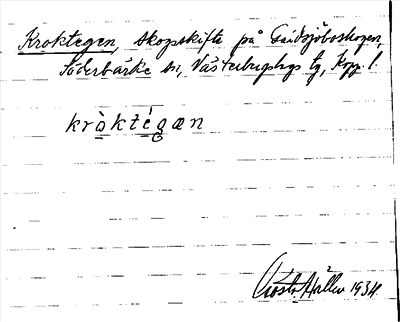 Kroktegen, skogsskifte på Saidsjöboskogen,
Söderbärke sn, Västerbergslags tg, Kopp. l.
kròktégæn
Gösta Hallin 1934